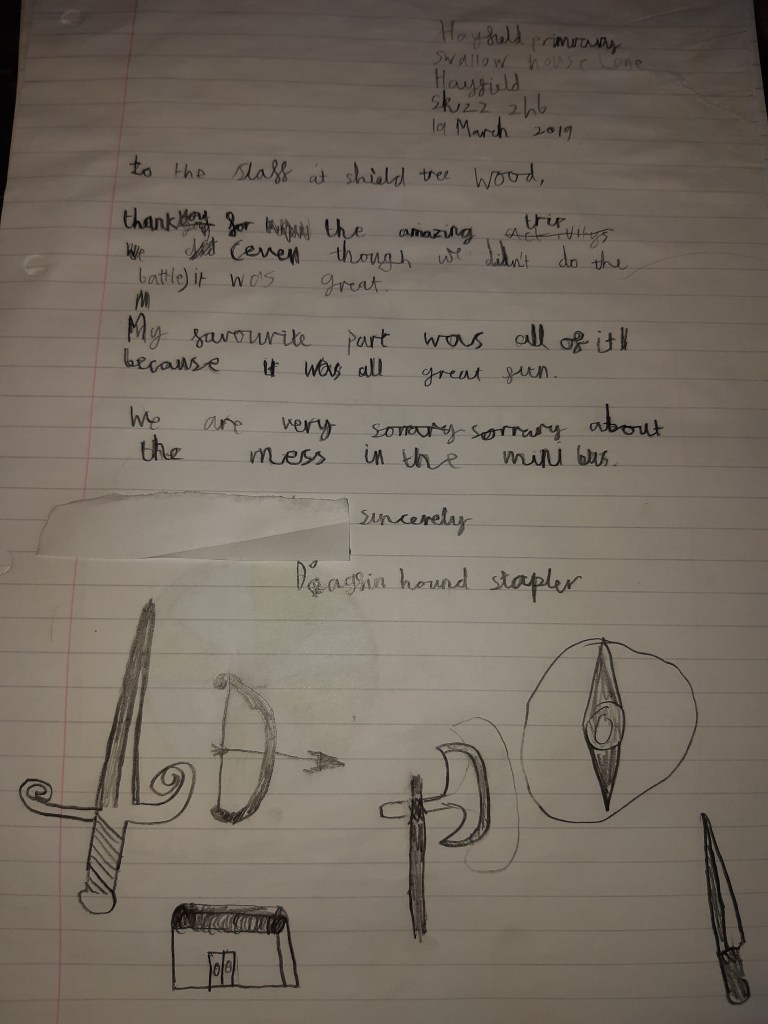 Hayfield primrary
swallow house Lane
Hayfield
Sk22 2hb
19 March 2019
to the staff at shield tree wood,
thank you for the amazing activitys trip
We did (even though we didn't do the
battle) it was great.
My favourite part was all of it
because it was all great fun.
We are very sorrary sorrary about
the mess in the mini bus.
sincerely
hound stapler